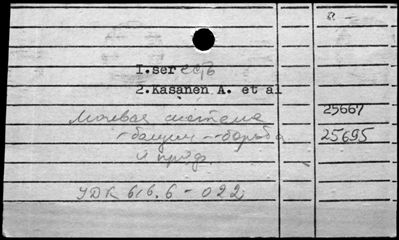 1.ser есть
2.Kasanen A. et al
25667
Мочевая система
-бацилл--борьба 25695
и проф.
УДК 616.6-022